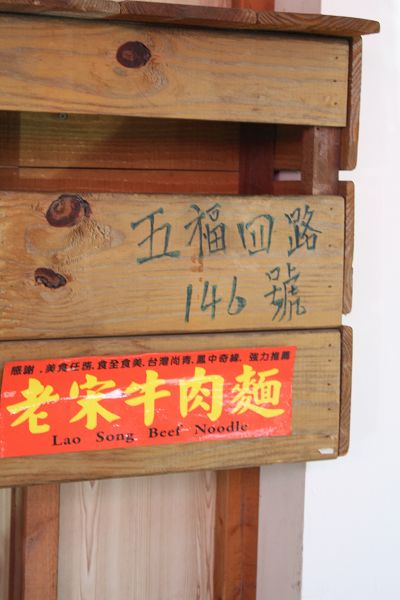 五福四路
146號
感謝.美食任務.食全食美.台灣尚青.鳳中奇緣.強力推薦
老宋牛肉麵
Lao Song Beef Noodle